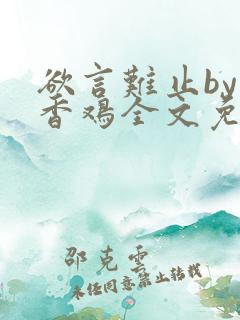 欲言難止by
香鸡全文免
邵克雲
未经同意禁止转载